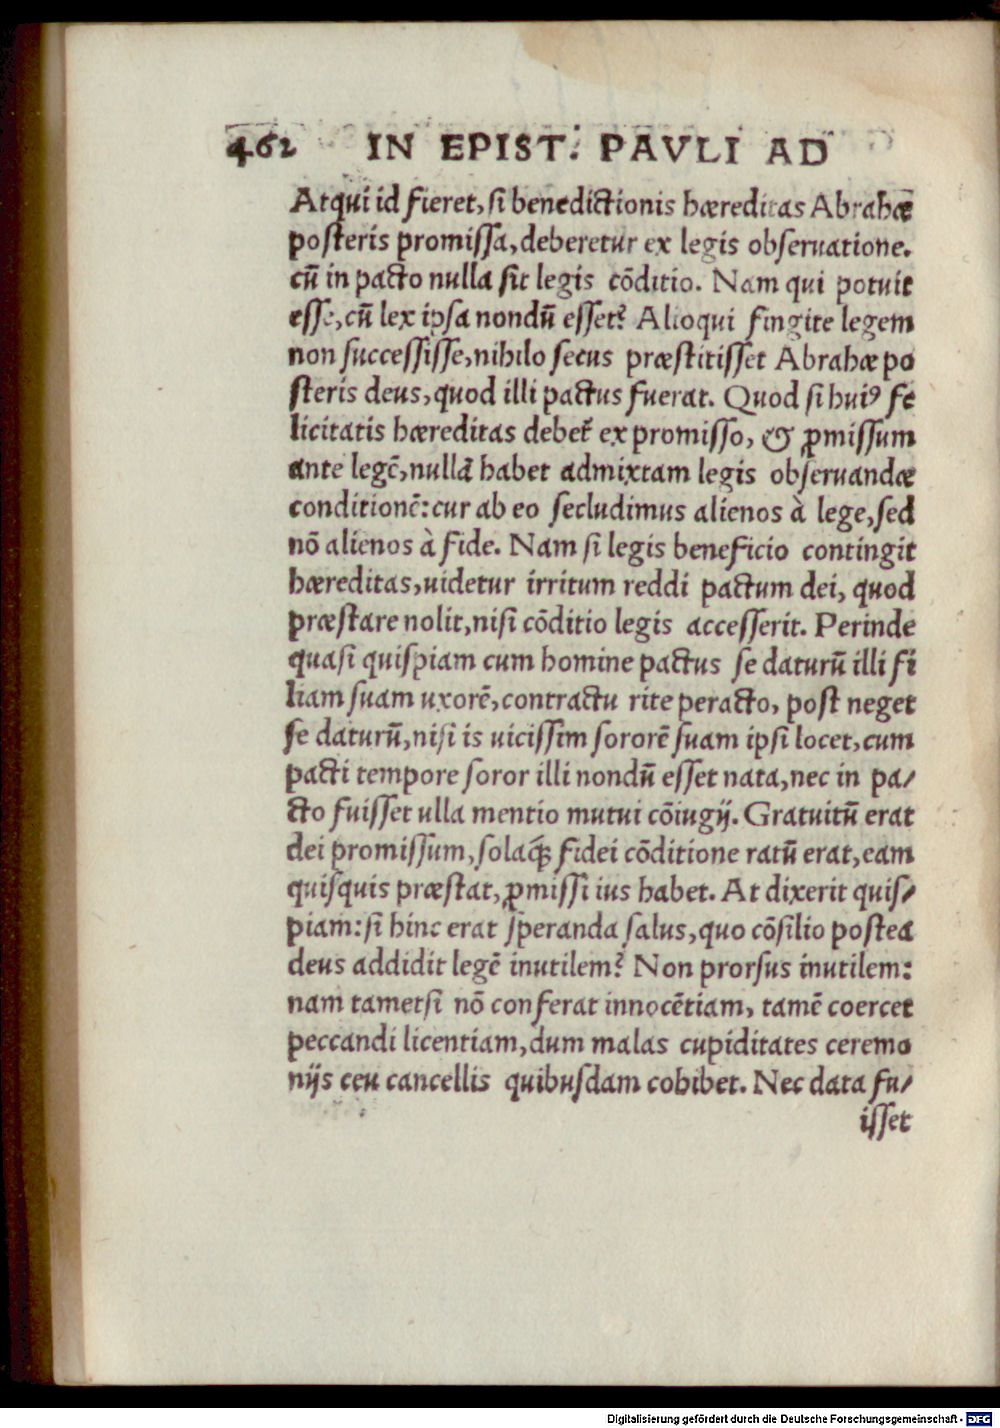 462 IN EPIST. PAVLI AD
Atqui id fieret, si benedictionis hæreditas Abrahæ
posteris promissa, deberetur ex legis obseruatione.
cū in pacto nulla sit legis cōditio. Nam qui potuit
esse, cū lex ipsa nondū esset? Alioqui fingite legem
non successisse, nihilo secus præstitisset Abrahæ po
steris deus, quod illi pactus fuerat. Quod si huiꝰ fe
licitatis hæreditas debet̃ ex promisso, & ꝓmissum
ante legē, nullā habet admixtam legis obseruandæ
conditionē: cur ab eo secludimus alienos à lege, sed
nō alienos à fide. Nam si legis beneficio contingit
hæreditas, uidetur irritum reddi pactum dei, quod
præstare nolit, nisi cōditio legis accesserit. Perinde
quasi quispiam cum homine pactus se daturū illi fi
liam suam uxorē, contractu rite peracto, post neget
se daturū, nisi is uicissim sororē suam ipsi locet, cum
pacti tempore soror illi nondū esset nata, nec in pa/
cto fuisset ulla mentio mutui cōiugij. Gratuitū erat
dei promissum, solaq́ꝫ fidei cōditione ratū erat, eam
quisquis præstat, ꝓmissi ius habet. At dixerit quis/
piam: si hinc erat speranda salus, quo cōsilio postea
deus addidit legē inutilem? Non prorsus inutilem:
nam tametsi nō conferat innocētiam, tamē coercet
peccandi licentiam, dum malas cupiditates ceremo
nijs ceu cancellis quibusdam cohibet. Nec data fu/
isset
Digitalisierung gefördert durch die Deutsche Forschungsgemeinschaft - DFG